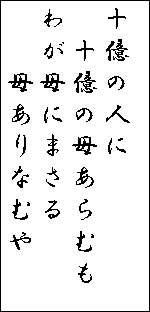 十億の人に
十億の母あらむも
わが母にまさる
母ありなむや